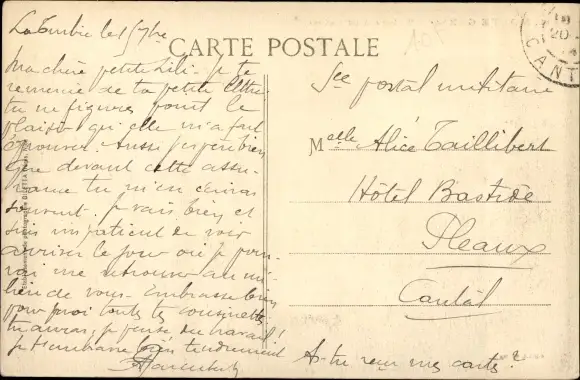 La Turbie le 5 7bre
CARTE POSTALE
Ma chère petite Lili - Je te
remercie de ta petite lettre
tu ne figures point le
plaisir qu'elle m'a fait
éprouver. Aussi j'espère bien
que devant cette assu-
rance tu m'en écriras
souvent. Je vais bien et
suis impatient de voir
arriver le jour où je pour-
rai me retrouver au mi-
lieu de vous. Embrasse bien
pour moi toutes tes cousinettes
tu auras, je pense du travail!
Je t'embrasse bien tendrement
Sce postal militaire
Melle Alice Taillibert
Hôtel Bastide
Pleaux
Cantal
As-tu reçu mes cartes?
CANT